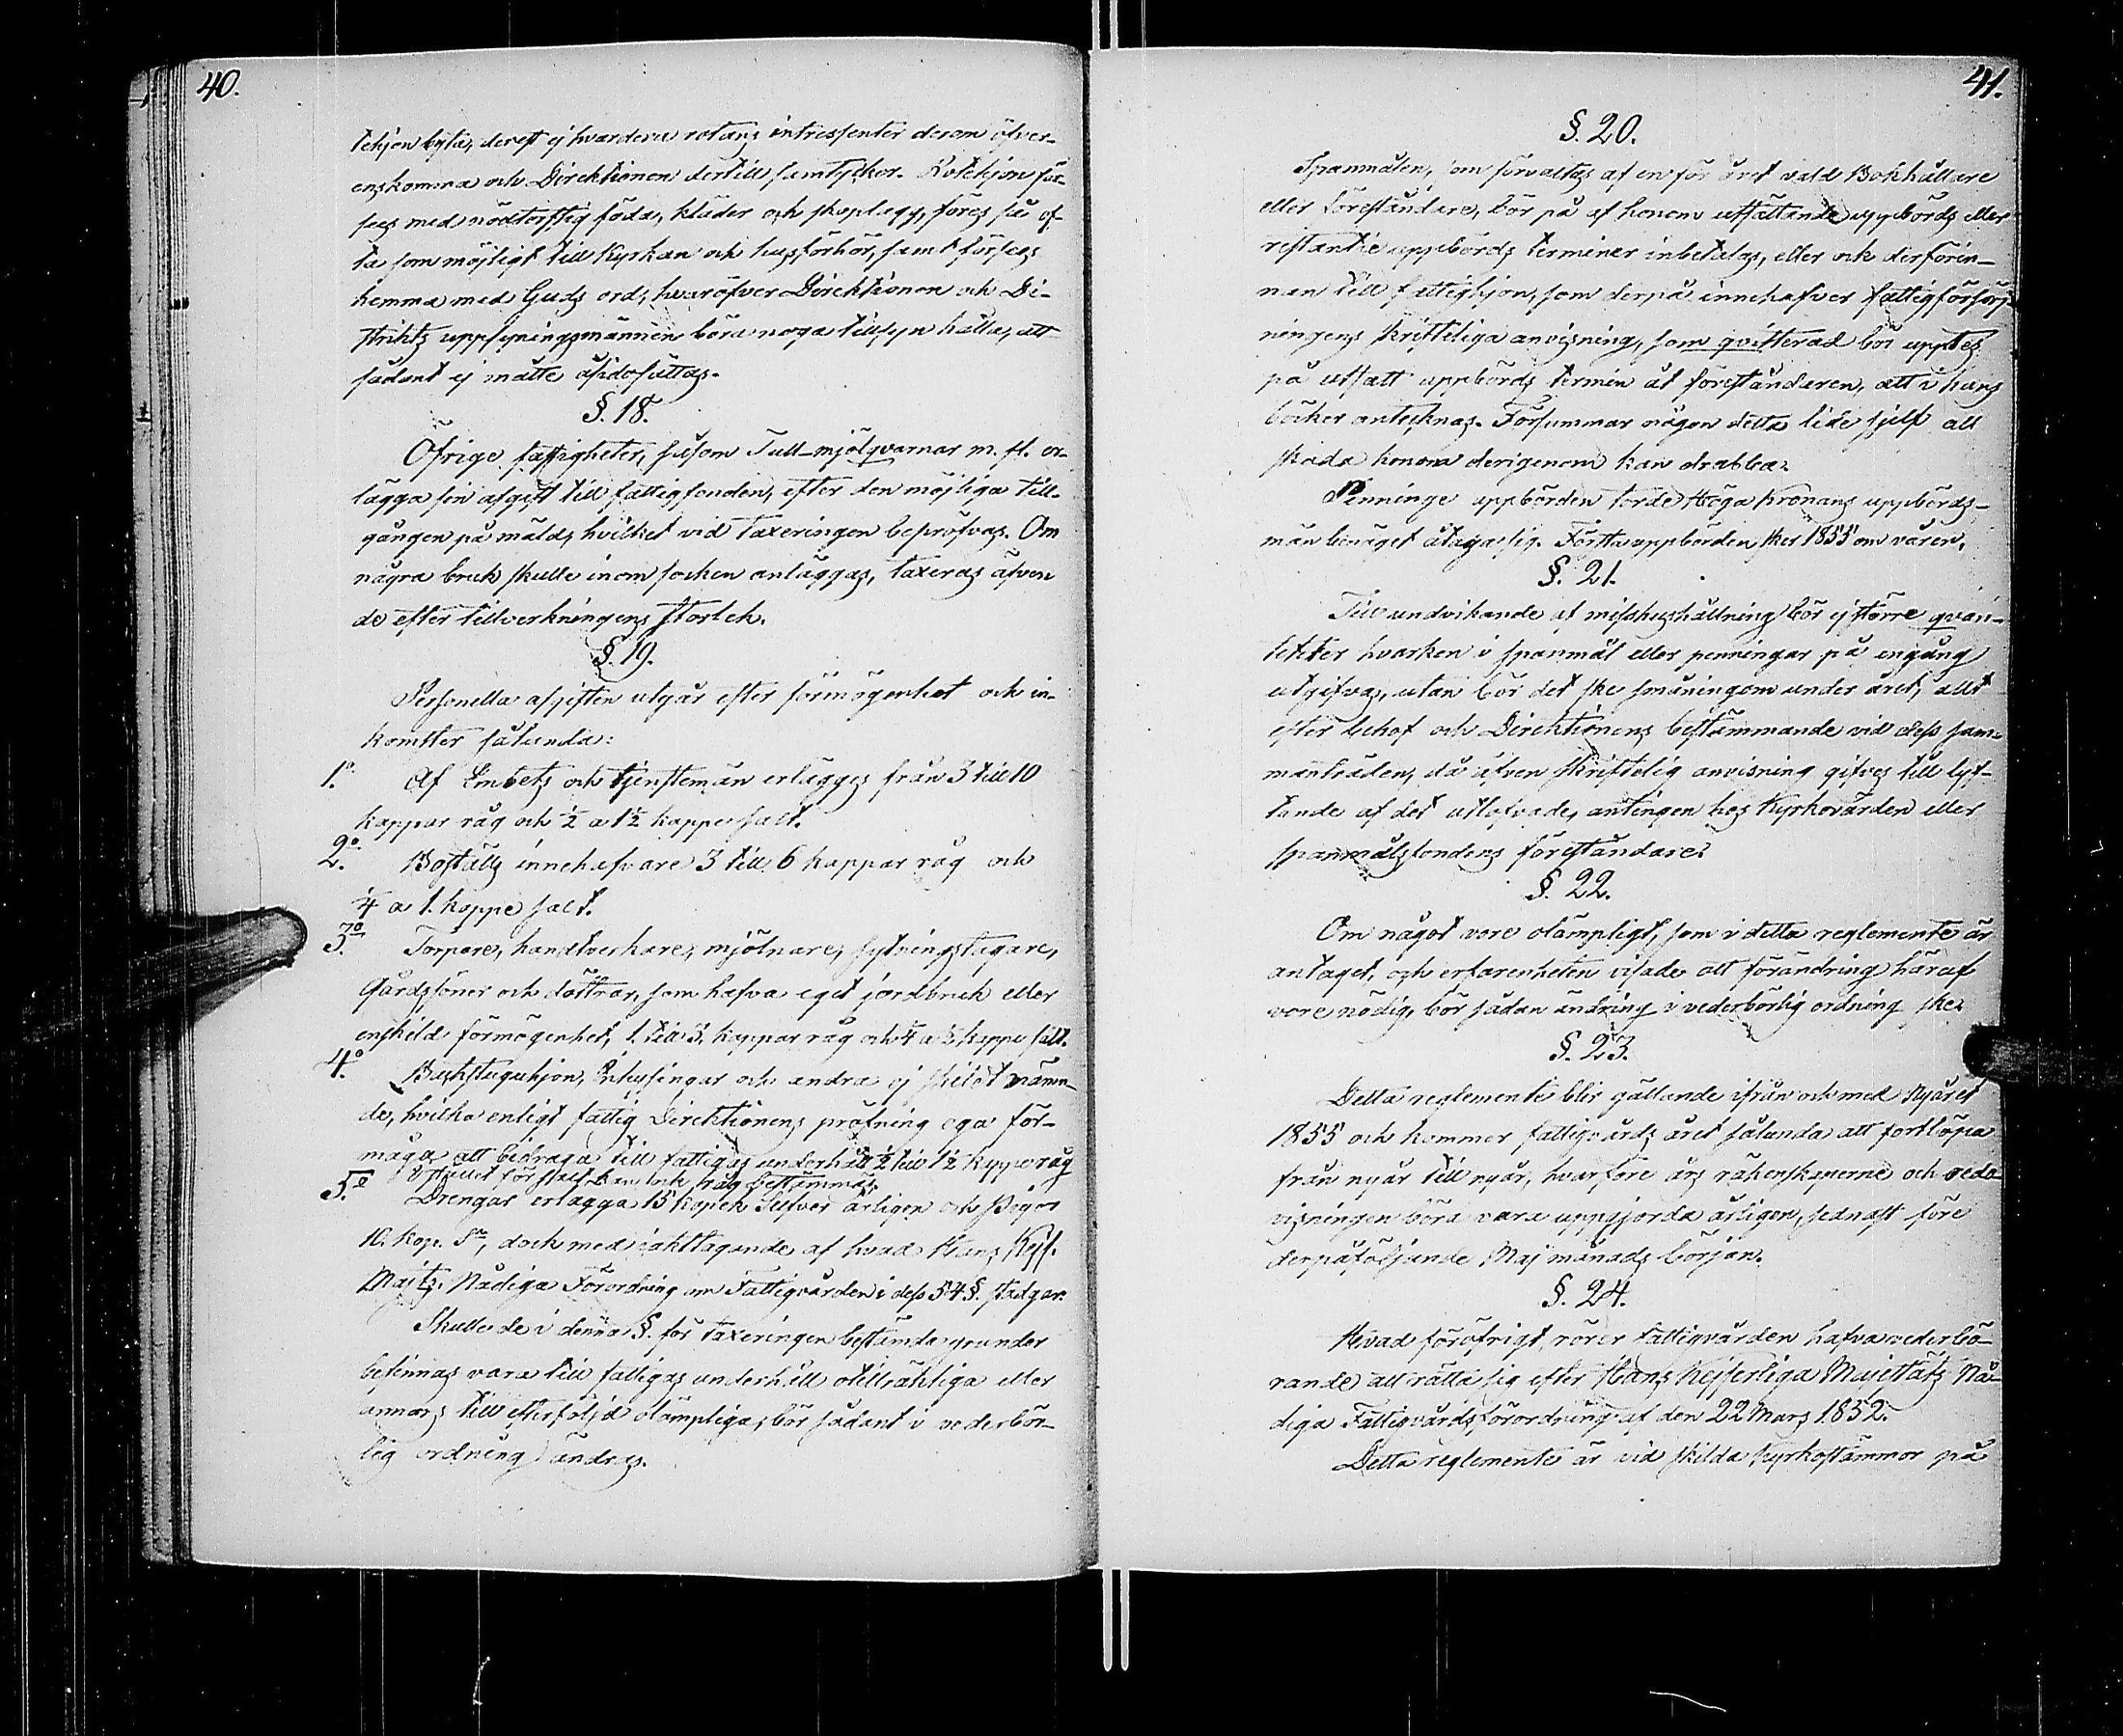 40.
tehjon byta, derest ej hvardera rotans intressenter derom öfver-
enskomma och Direktionen dertill samtycker. Rotehjon för-
ses med nödtorftig föda, kläder och skoplagg, föres så of-
ta som möjligt till Kyrkan och husförhör, samt förses
hemma med Guds ord, hvaröfver Direktionen och Di-
strikts uppsyningsmännen böra noga tillsyn hålla, att
sådant ej måtte åsidosättas.
§. 18.
Öfrige fastigheter, såsom Tull-mjölqvarnar m. fl. er-
lägga sin afgift till fattigfonden, efter den möjliga till-
gången på mäld, hvilket vid taxeringen bepröfvas. Om
några bruk skulle inom socken anläggas, taxeras äfven
de efter tillverkningens storlek.
§. 19.
Personella afgiften utgår efter förmögenhet och in-
komster sålunda:
1.o Af Embets och tjenstemän erlägges från 3 till 10
kappar råg och ½ a 1½ kappe salt.
2.o Boställs innehafvare 3 till 6 kappar råg och
¼ a 1. kappe salt.
3.o Torpare, handtverkare, mjölnare, sytningstagare,
Gårdssöner och döttrar, som hafva eget jordbruk eller
enskild förmögenhet, 1. till 3. kappar råg och ¼ a ½ kappe salt.
4.o Backstuguhjon, Inhysingar och andra ej skildt nämn-
de, hvilka enligt fattig Direktionens pröfning ega för-
måga att bidraga till fattigas underhåll ½ till 1½ kappe råg
I stället för salt kan ock råg bestämmas.
5.o Drengar erlägga 15 kopek Silfver årligen och Pigor
10. kop. Sr, dock med iakttagande af hvad Hans Kejs.
Maj:ts. Nådiga Förordning om Fattigvården i dess 54 §. stadgar.
Skulle de i denna §. för taxeringen bestämda grunder
befinnas vara till fattigas underhåll otillräkliga eller
annars till efterföljd olämpliga, bör sådant i vederbör-
lig ordning ändras.
41.
§. 20.
Spanmålen, som förvaltas af en för året vald Bokhållare
eller föreståndare, bör på af honom utsättande uppbörds eller
restantie uppbörds terminer inbetalas, eller ock derförin-
nan till fattighjon, som derpå innehafver fattigförsörj-
ningens skriftliga anvisning, som qvitterad bör uppteS
på utsatt uppbörds termin åt föreståndaren, att i hans
böcker antecknas. Försummar någon detta lide sjelf all
skada honom derigenom kan drabba.
Penninge uppbörden torde Höga Kronans uppbörds-
män benäget åtaga sig. Första uppbörden sker 1855 om våren.
§. 21.
Till undvikande af misshushållning bör ej större qvan-
titeter hvarken i spanmål eller penningar på engång
utgifvas, utan bör det ske småningom under året, allt
efter behof och Direktionens bestämmande vid dess sam-
manträden, då äfven skriftelig anvisning gifves till lyf-
tande af det utlofvade, antingen hos Kyrkovärden eller
spanmålsfondens föreståndare.
§. 22.
Om något vore olämpligt, som i detta reglemente är
antaget, och erfarenheten visade att förändring häraf
vore nödig, bör sådan ändring i vederbörlig ordning ske.
§. 23.
Detta reglemente blir gällande ifrån och med Nyåret
1855 och kommer fattigvårds året sålunda att fortlöpa
från nyår till nyår, hvarföre års räkenskaperne och redo-
visningen böra vara uppgjorda årligen, sednast före
derpåföljande Maj månads början.
§. 24.
Hvad föröfrigt rörer fattigvården hafva vederbö-
rande att rätta sig efter Hans Kejserliga Majestäts Nå-
diga Fattigvårdsförordning af den 22 Mars 1852.
Detta reglemente är vid skilda kyrkostämmor på